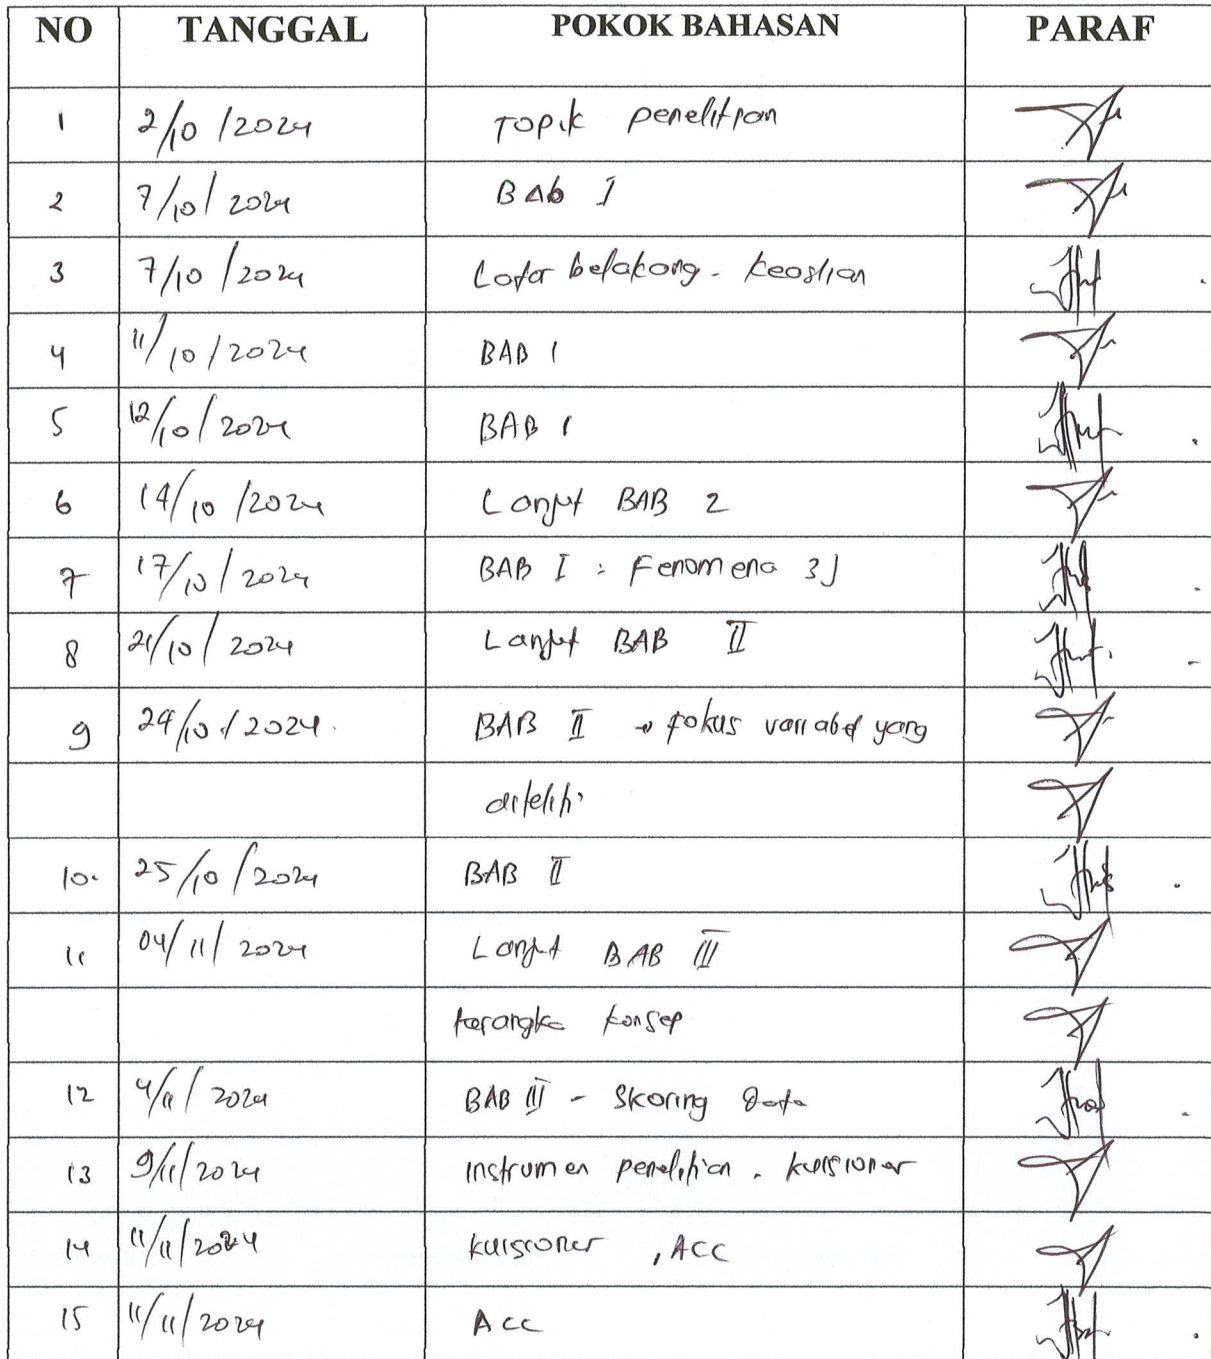 NO TANGGAL POKOK BAHASAN PARAF
1 2/10/2024 Topik penelitian
2 7/10/2024 BAb I
3 7/10/2024 Latar belakang - keaslian
4 11/10/2024 BAB 1
5 12/10/2024 BAB 1
6 14/10/2024 Lanjut BAB 2
7 17/10/2024 BAB I : Fenomena 3J
8 21/10/2024 Lanjut BAB II
9 24/10/2024. BAB II → fokus variabel yang
diteliti
10. 25/10/2024 BAB II
11 04/11/2024 Lanjut BAB III
kerangka konsep
12 4/11/2024 BAB III - Skoring Data
13 9/11/2024 instrumen penelitian . kuisioner
14 11/11/2024 kuisioner , ACC
15 11/11/2024 Acc